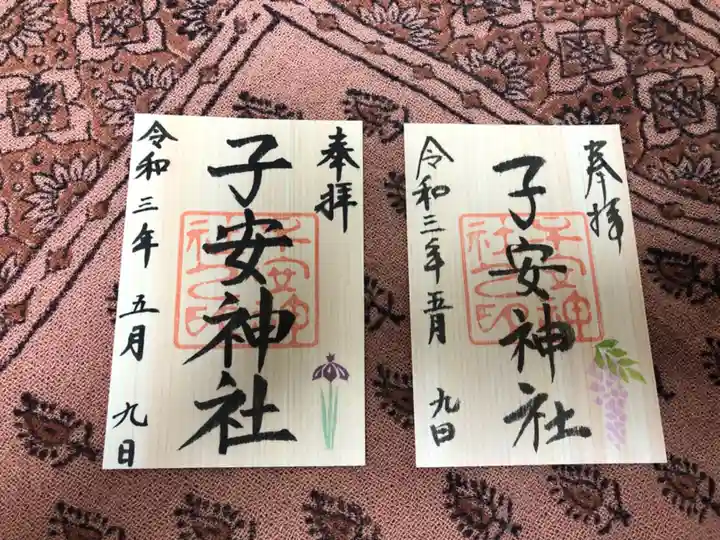 奉拝
子安神社
子安神社之印
令和三年 五月 九日
奉拝
子安神社
子安神社之印
令和三年五月 九日